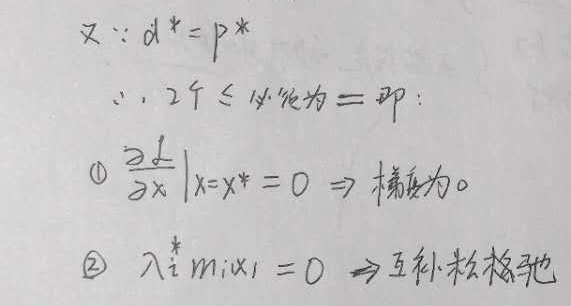 又∵ d* = p*
∴ 2个 ≤ 必须为 = 即：
① ∂L/∂x |x=x* = 0 ⇒ 梯度为0
② λi* mi(x) = 0 ⇒ 互补松弛